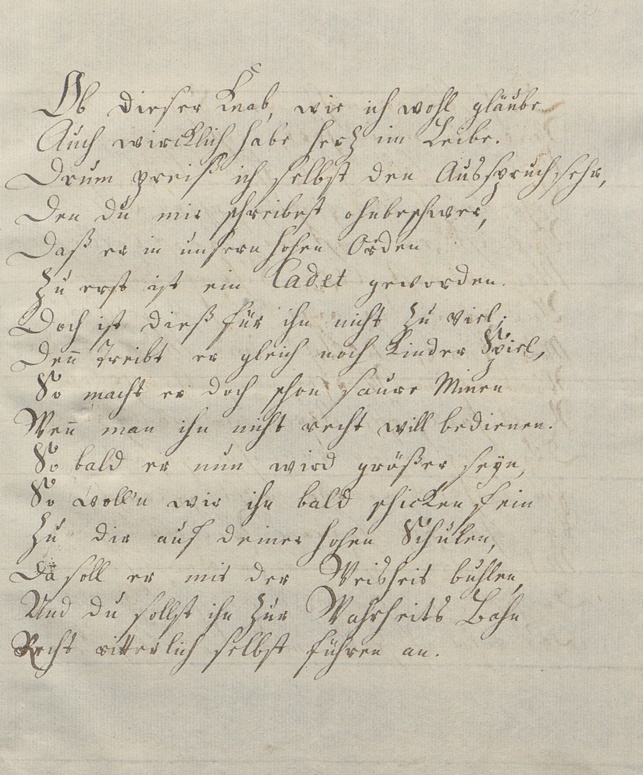 Ob dieser Knab, wie ich wohl gläube
Auch wircklich habe Herz im Leibe.
Drum preiß ich selbst den Ausspruch sehr,
Den du mir schreibest ohnbeschwer,
Daß er in unsern hohen Orden
Zu erst ist ein Cadet geworden.
Doch ist dieß für ihn nicht zu viel;
Deñ Treibt er gleich noch Kinder Spiel,
So macht er doch schon saure Minen
Weñ man ihn nicht recht will bedienen.
So bald er nun wird größer seyn,
So woll'n wir ihn bald schicken fein
Zu dir auf deiner hohen Schulen,
Da soll er mit der Weisheit buhlen,
Und du sollst ihn zur Wahrheits Bahn
Recht ritterlich selbst führen an.